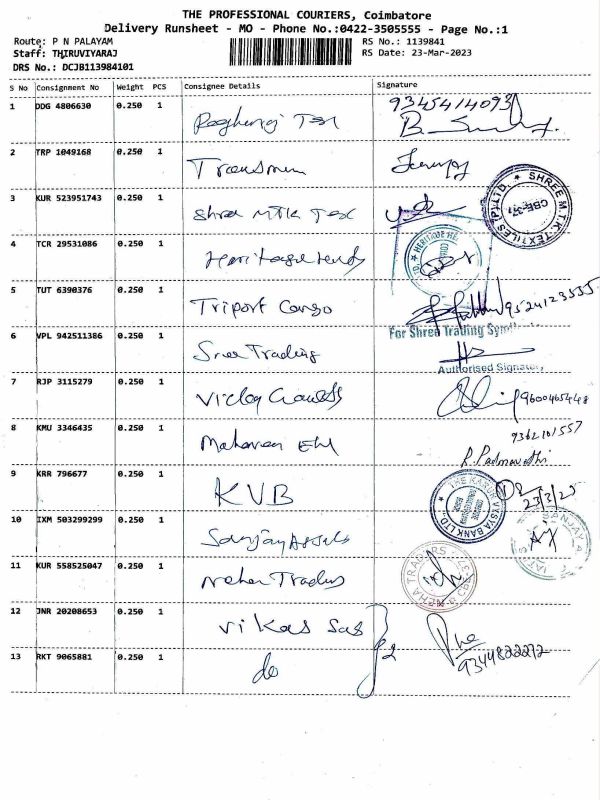 THE PROFESSIONAL COURIERS, Coimbatore
Delivery Runsheet - MO - Phone No.:0422-3505555 - Page No.:1
Route: P N PALAYAM
RS No.: 1139841
Staff: THIRUVIYARAJ
RS Date: 23-Mar-2023
DRS No.: DCJB113984101
S No Consignment No Weight PCS Consignee Details Signature
1 DDG 4806630 0.250 1 9345414093
2 TRP 1049168 0.250 1
3 KUR 523951743 0.250 1 Shree MTK Tex
SHREE M.T.K-TEXTILES (P) LTD. CBE-37
4 TCR 29531086 0.250 1
HERITAGE
5 TUT 6390376 0.250 1 Triport Cargo 9524123535
For Shree Trading
6 VPL 942511386 0.250 1 Sree Trading
Authorised Signatory
7 RJP 3115279 0.250 1 9600465448
8 KMU 3346435 0.250 1 9362101557
R. Padmavathi
9 KRR 796677 0.250 1 KVB
THE KARUR VYSYA BANK LTD.
10 IXM 503299299 0.250 1 Sanjay Assocts
SANJAY A
11 KUR 558525047 0.250 1 Neha Traders
NEHA TRADERS
12 JNR 20208653 0.250 1 Vikas Sas
13 RKT 9065881 0.250 1 do 2 9344822272